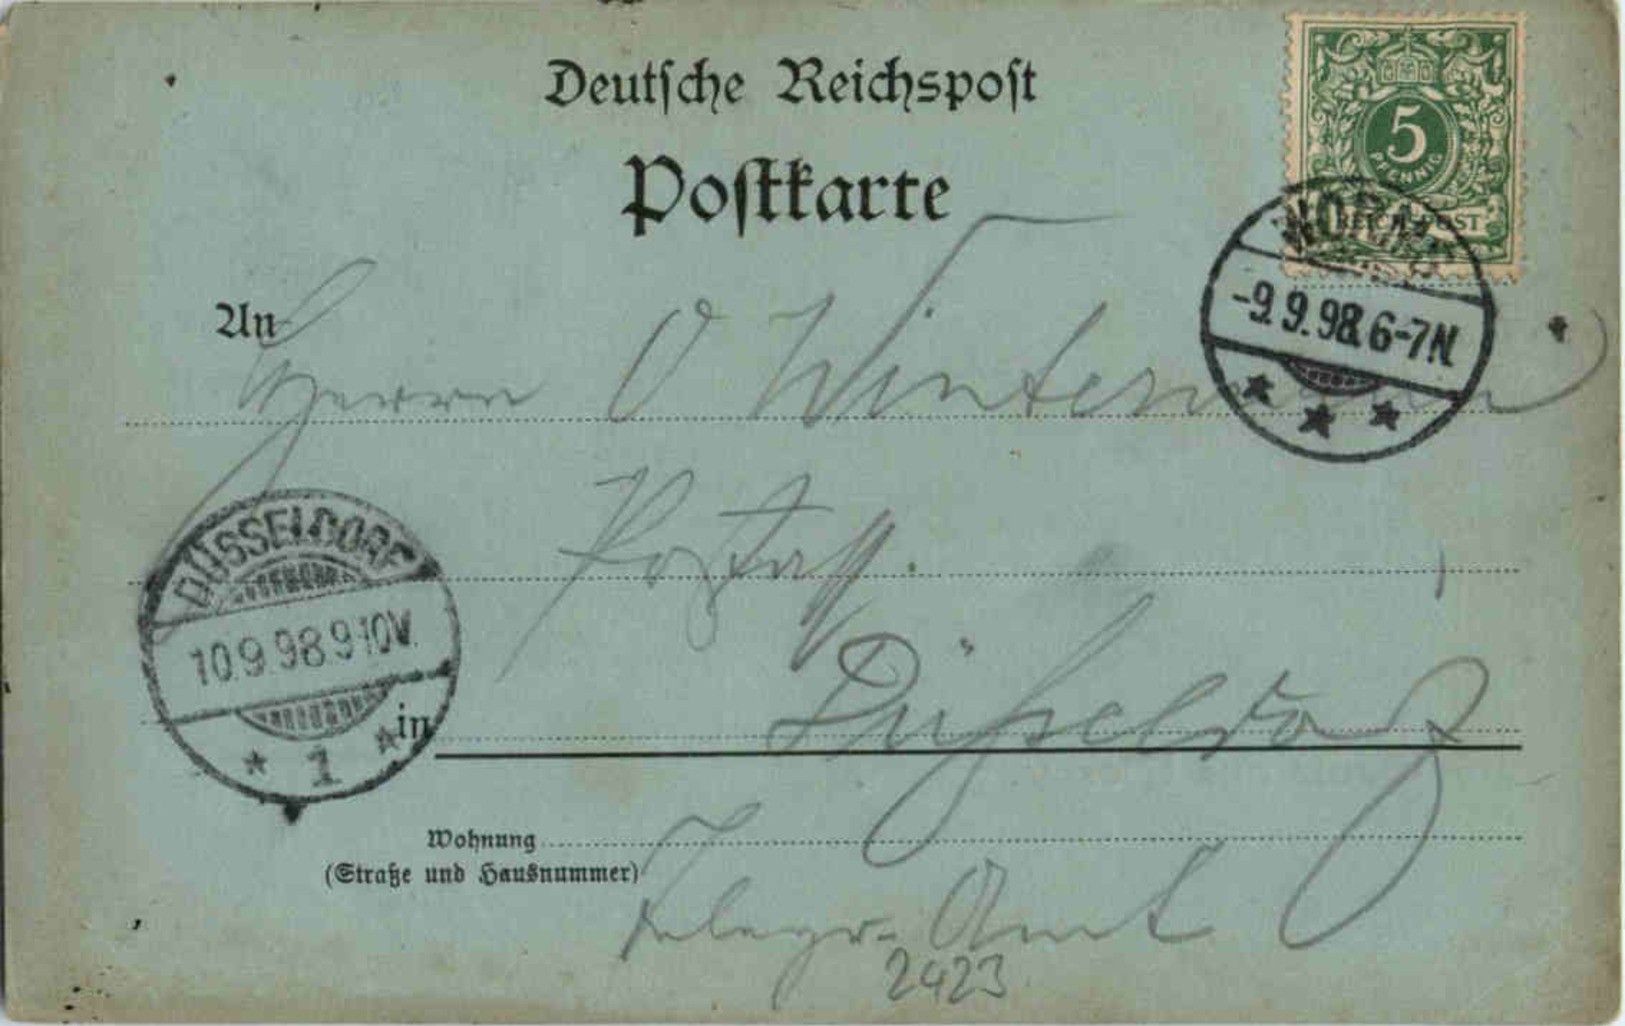 Deutsche Reichspost
Postkarte
5
PFENNIG
REICHSPOST
-9.9.98. 6-7N.
An
Herrn O Wintermann
Postass.
DÜSSELDORF
10.9.98.9-10V.
1
in Düsseldorf
Wohnung
(Straße und Hausnummer)
Telegr-Amt
2423